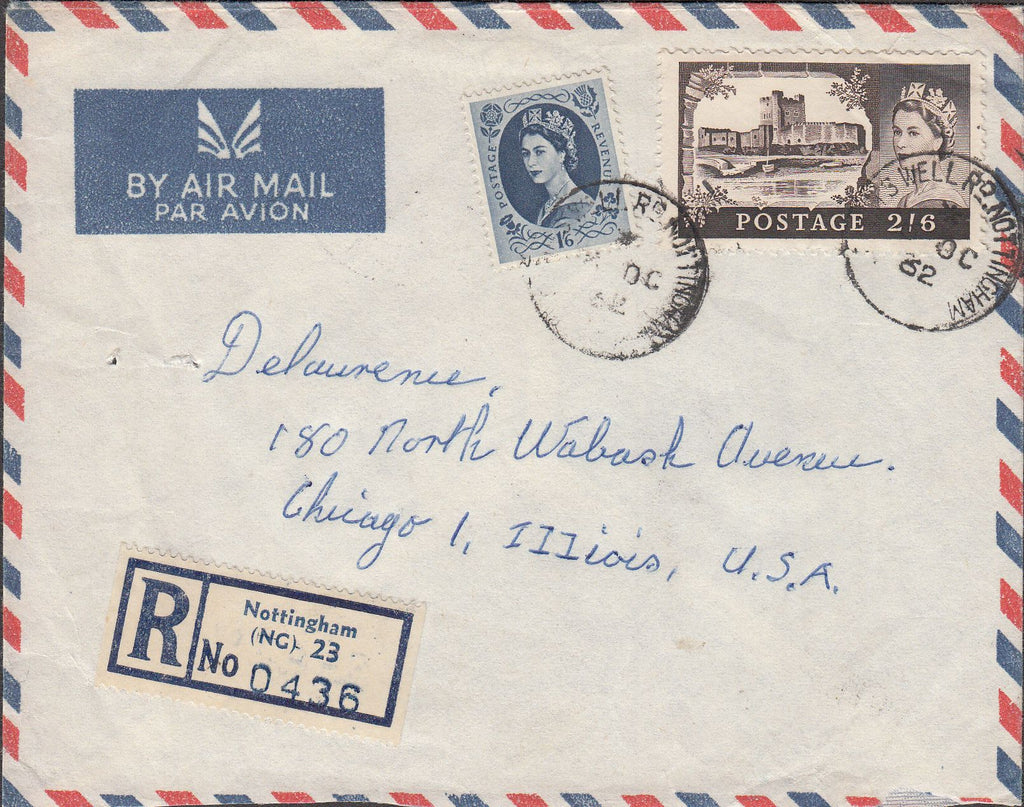 BY AIR MAIL
PAR AVION
POSTAGE
REVENUE
1/6
POSTAGE 2/6
RD. NOTTINGHAM
OC
62
WELL RD. NOTTINGHAM
OC
62
Delaurence,
180 North Wabash Avenue.
Chicago 1, IIIiois, U.S.A.
R
Nottingham
(NG) 23
No 0436